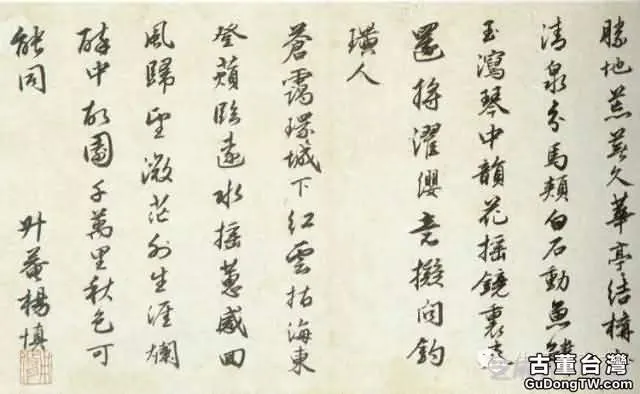 勝地荒蕪久華亭結構
清泉分馬頰白石動魚鱗
玉瀉琴中韻花搖鏡裏春
還將濯纓意擬問釣
璜人
蒼靄環城下紅雲拈海東
登蘋臨遠水搖蕙感回
風歸望微茫外生涯爛
醉中故園千萬里秋色可
能同
升菴楊慎
古董台灣
GuDongTW.com